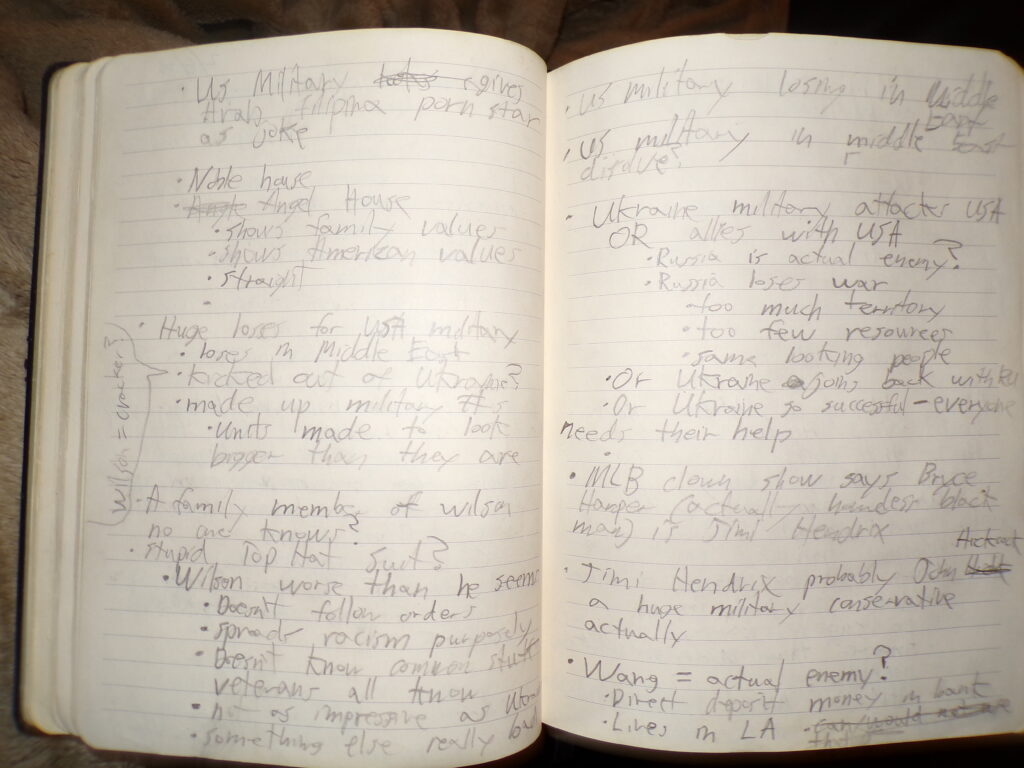 • US Military gives
Arab filipina porn star
as joke
• Noble house
• Angel House
• shows family values
• shows American values
• straight
•
• Huge loses for USA military
• loses in Middle East
• kicked out of Ukraine?
• made up military #s
• Units made to look
bigger than they are
Wilson = cracker?
• A family member of wilson
no one knows?
• stupid Top Hat Suit?
• Wilson worse than he seems
• Doesn't follow orders
• spreads racism purposely
• Doesn't know common stuff
veterans all know
• not as impressive as Ukra
• something else really ba
• US military losing in Middle
East
• US military in middle East
• Ukraine military attacks USA
OR allies with USA
• Russia is actual enemy?
• Russia loses war
- too much territory
• too few resources
• same looking people
• Or Ukraine joins back with Ru
• Or Ukraine so successful - everyone
needs their help
• MLB clown show says Bryce
Harper (actually black
man) is Jimi Hendrix
• Jimi Hendrix probably
a huge military conservative
actually
• Wang = actual enemy?
• Direct deposit money in bank
• Lives in LA